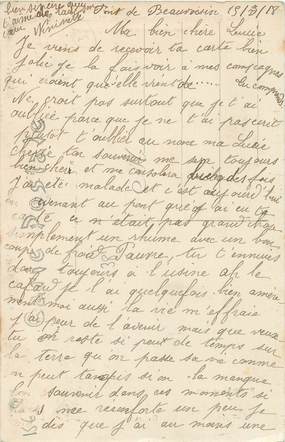 bien sincère qui
t'aime de tout
cœur Ninirette
Pont de Beauvoisin 19/3/18
Ma bien chère Lucie
Je viens de recevoir ta carte bien
jolie je la fais voir à mes compagnes
qui disent qu'elle vient de.....
tu comprends
Ne croit pas surtout que je t'ai
oubliée parce que je ne t'ai pas écrit
plutôt t'oublier au non ma Lucie
chérie ton souvenir me sera toujours
bien cher et me consolera bien des fois
j'ai été malade et c'est aujourd'hui
venant au pont que j'ai eu ta
carte ce n'était pas grand chose
simplement un rhume avec un bon
coup de froid Pauvre, tu t'ennuies
donc toujours à l'usine ah le
cafard je l'ai quelquefois bien amère
ment moi aussi la vie m'effraie
j'ai peur de l'avenir mais que veux
tu on reste si peut de temps sur
la terre qu'on passe sa vie comme
on peut tampis si on la manque
ton souvenir dans ces moments si
me réconforte un peu je
dis que j'ai au moins une